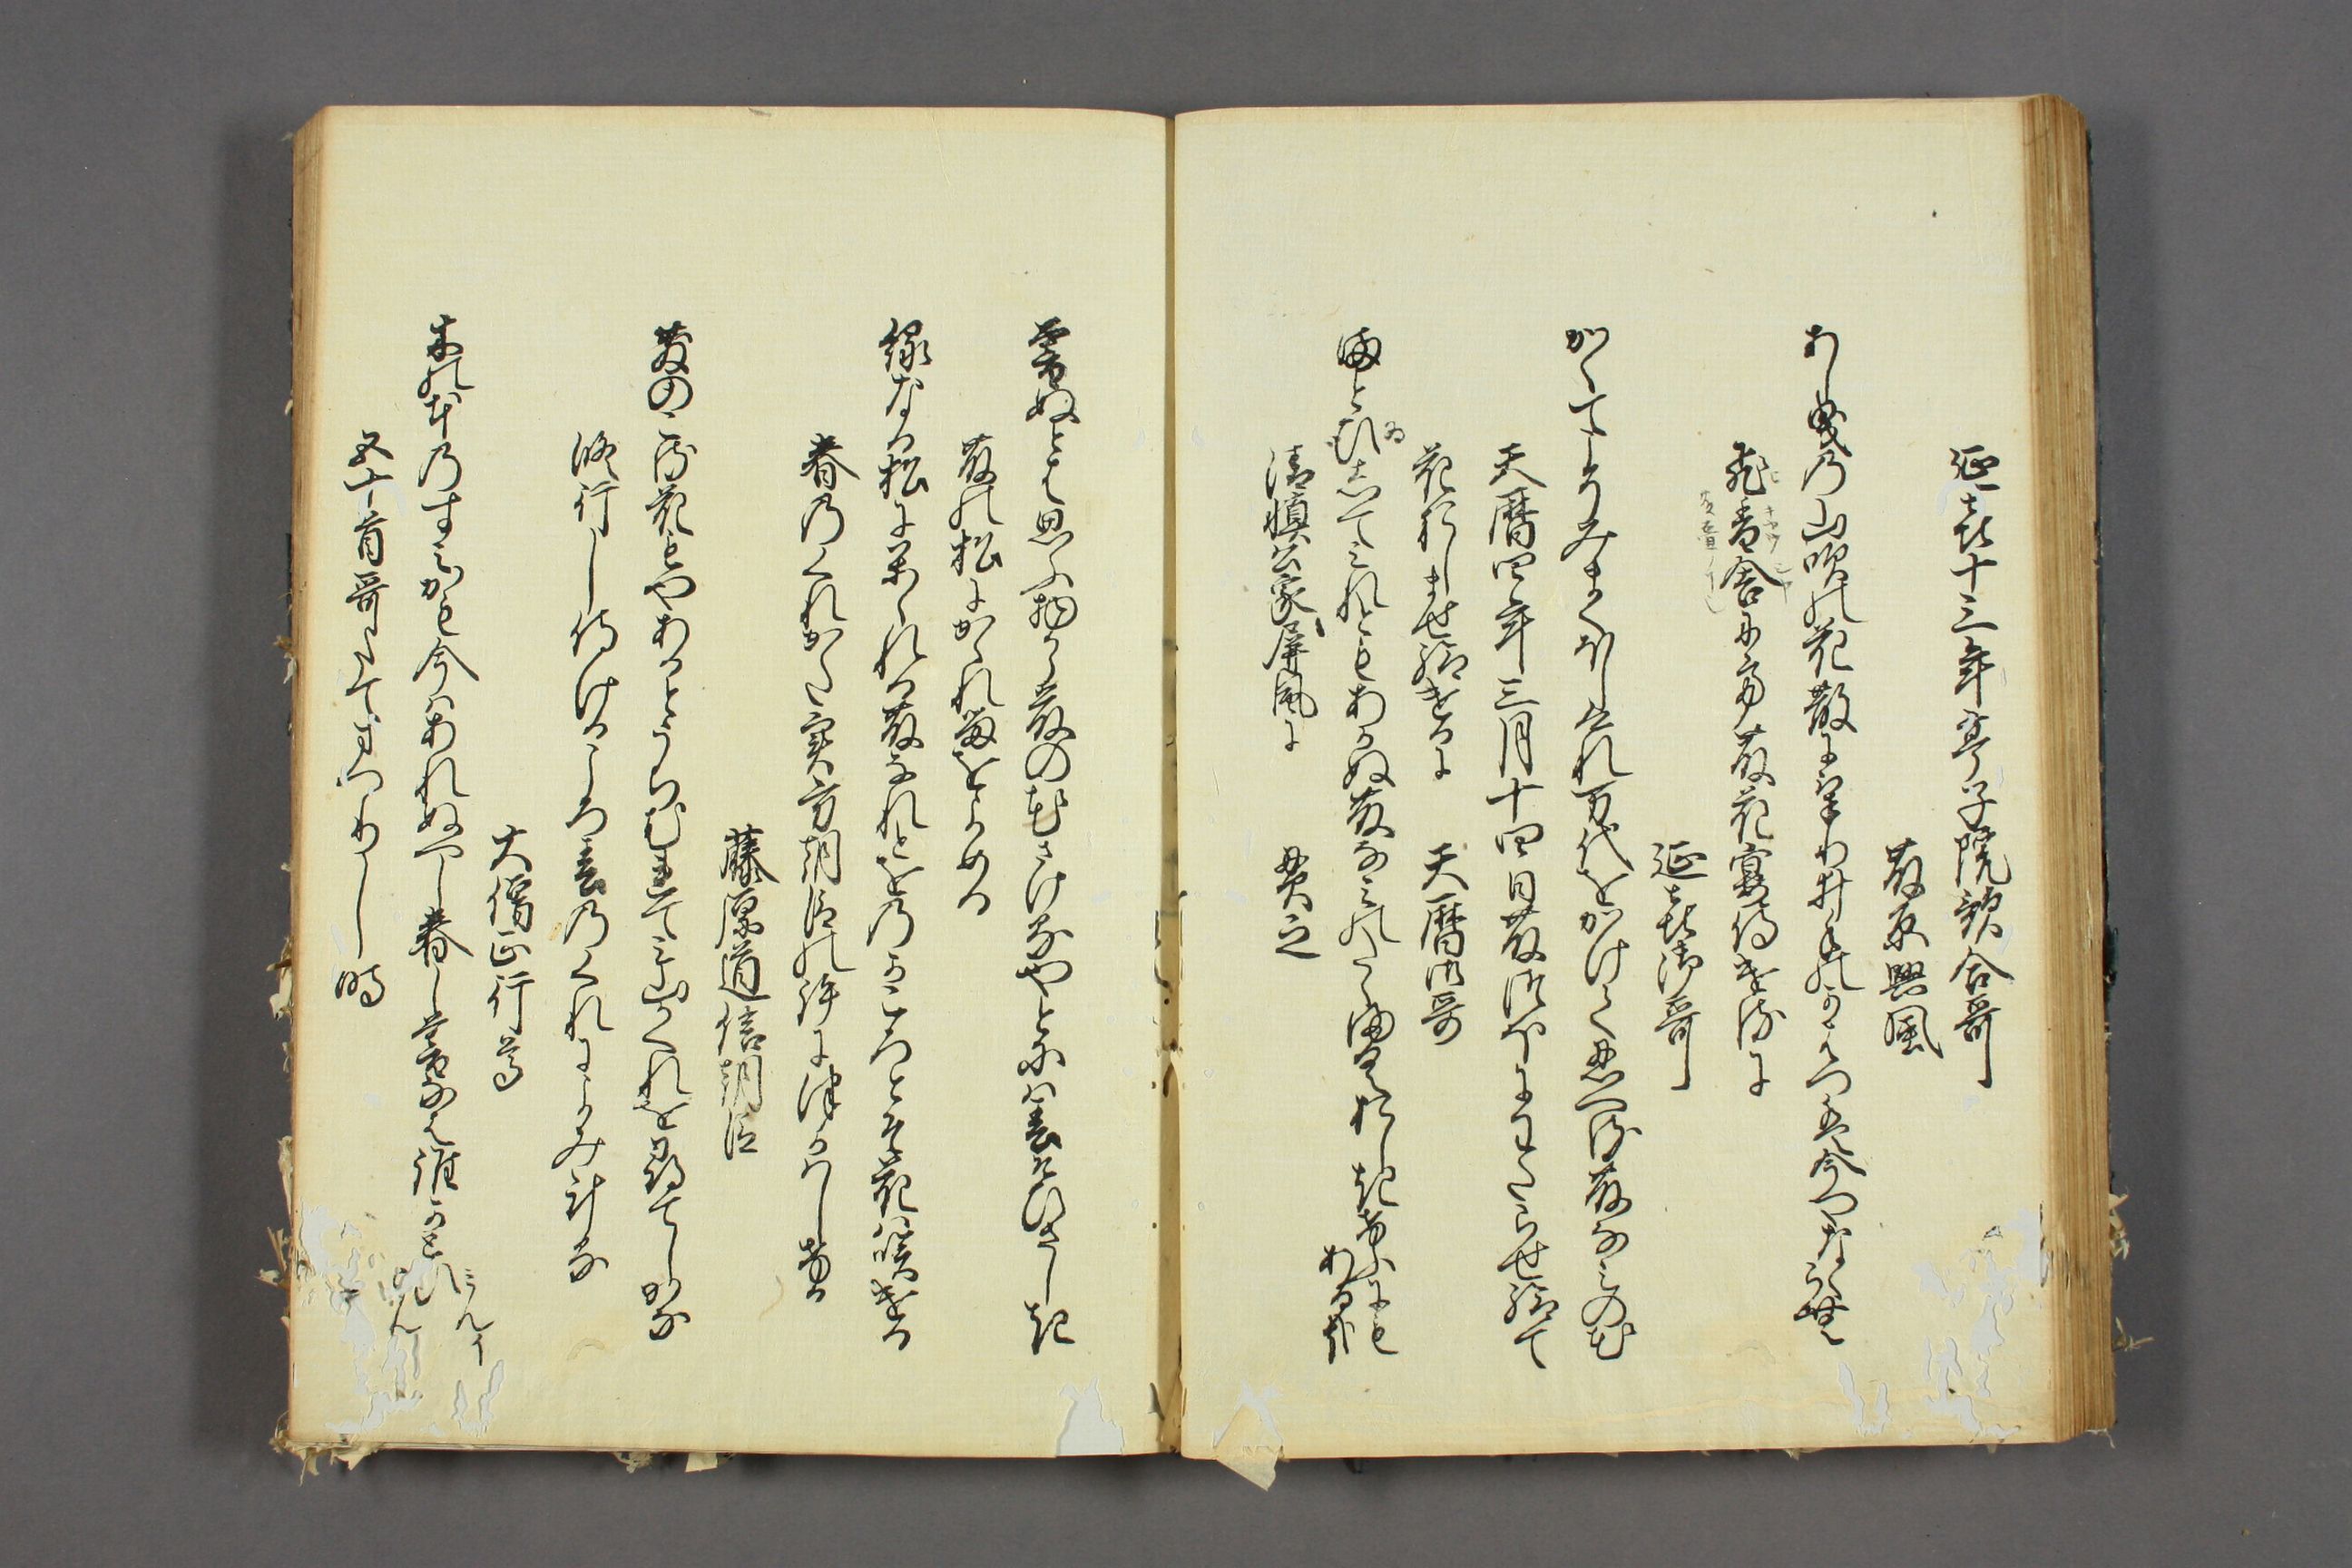 延喜十三年亭子院歌合哥
藤原興風
あし曳乃山吹の花散にけり井手のかはつは今やなくらむ
飛香舎にて藤花宴侍ける に
延喜御哥
かくてこそみまくほしけれ万代をかけて思へる藤なみの花
天暦四年三月十四日藤つほにわたらせ給て
花おしませ給けるに
天暦御哥
まとゐしてみれともあかぬ藤なみのたゝまくおしきけふにも
あるかな
清慎公家屏風に
貫之
暮ぬとは思ふ物から藤の花さけるやとには春そひさしき
藤の松にかゝれるをよめる
緑なる松にかゝれる藤なれとをのかころとそ花は咲ける
春のくれかた實方朝臣の許につかはしける
藤原道信朝臣
散のこる花もやあるとうちむれてみ山かくれを尋てしかな
修行し侍けるころ春のくれによみける
大僧正行尊
木の本のすみかも今はあれぬへし春し暮なは誰かとひ
こん
にこんイ
五十首哥たてまつりし時